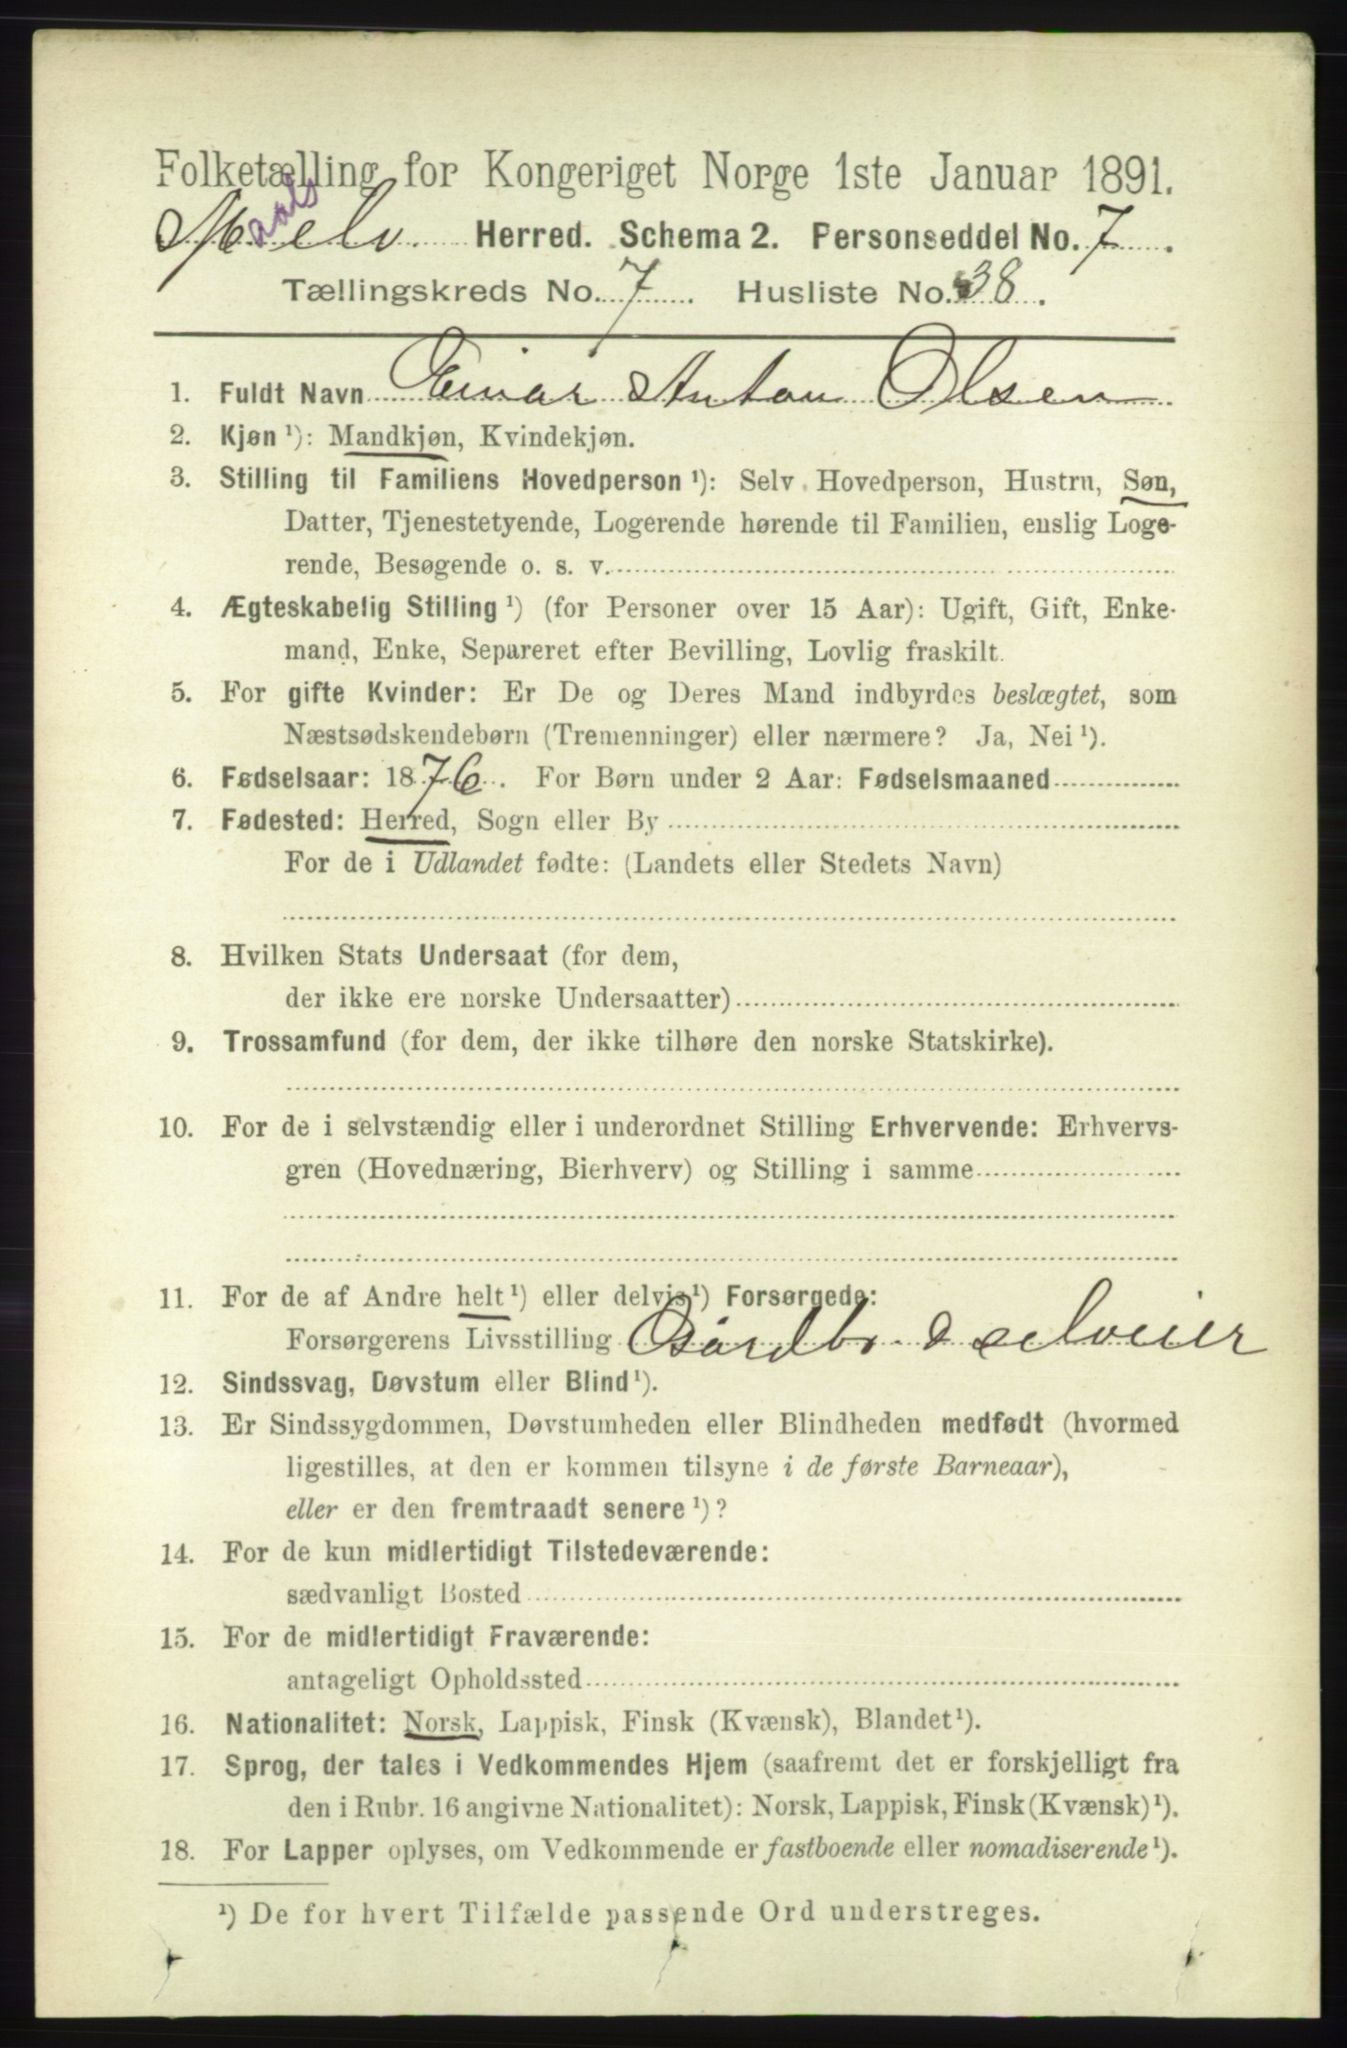 Folketælling for Kongeriget Norge 1ste Januar 1891.
Maalselv Herred. Schema 2. Personseddel No. 7.
Tællingskreds No. 7. Husliste No. 38.
1. Fuldt Navn Einar Anton Olsen
2. Kjøn ¹): Mandkjøn, Kvindekjøn.
3. Stilling til Familiens Hovedperson ¹): Selv Hovedperson, Hustru, Søn,
Datter, Tjenestetyende, Logerende hørende til Familien, enslig Loge-
rende, Besøgende o. s. v.
4. Ægteskabelig Stilling ¹) (for Personer over 15 Aar): Ugift, Gift, Enke-
mand, Enke, Separeret efter Bevilling, Lovlig fraskilt.
5. For gifte Kvinder: Er De og Deres Mand indbyrdes beslægtet, som
Næstsødskendebørn (Tremenninger) eller nærmere? Ja, Nei ¹).
6. Fødselsaar: 1876. For Børn under 2 Aar: Fødselsmaaned
7. Fødested: Herred, Sogn eller By
For de i Udlandet fødte: (Landets eller Stedets Navn)
8. Hvilken Stats Undersaat (for dem,
der ikke ere norske Undersaatter)
9. Trossamfund (for dem, der ikke tilhøre den norske Statskirke).
10. For de i selvstændig eller i underordnet Stilling Erhvervende: Erhvervs-
gren (Hovednæring, Bierhverv) og Stilling i samme
11. For de af Andre helt ¹) eller delvis ¹) Forsørgede:
Forsørgerens Livsstilling Gårdbr. & selveier
12. Sindssvag, Døvstum eller Blind ¹).
13. Er Sindssygdommen, Døvstumheden eller Blindheden medfødt (hvormed
ligestilles, at den er kommen tilsyne i de første Barneaar),
eller er den fremtraadt senere ¹)?
14. For de kun midlertidigt Tilstedeværende:
sædvanligt Bosted
15. For de midlertidigt Fraværende:
antageligt Opholdssted
16. Nationalitet: Norsk, Lappisk, Finsk (Kvænsk), Blandet ¹).
17. Sprog, der tales i Vedkommendes Hjem (saafremt det er forskjelligt fra
den i Rubr. 16 angivne Nationalitet): Norsk, Lappisk, Finsk (Kvænsk) ¹).
18. For Lapper oplyses, om Vedkommende er fastboende eller nomadiserende ¹).
¹) De for hvert Tilfælde passende Ord understreges.